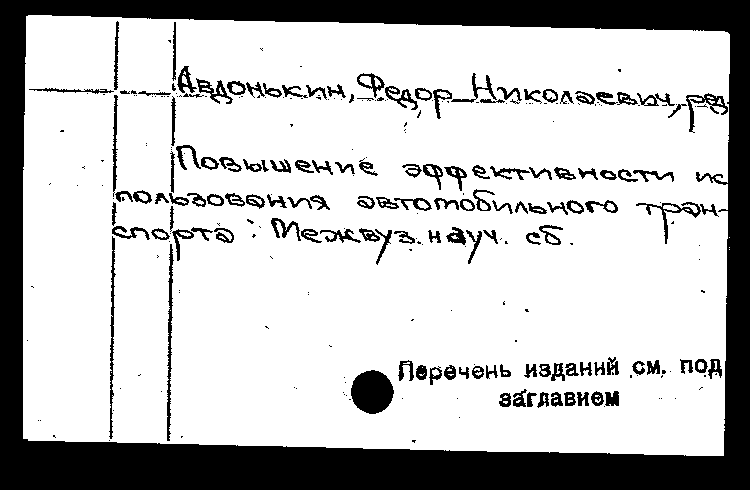 Авдонькин, Федор Николаевич, ред
Повышение эффективности ис
пользования автомобильного тран-
спорта : Межвуз. науч. сб.
Перечень изданий см. под
заглавием